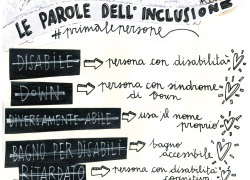 LE PAROLE DELL'INCLUSIONE
#primalepersone
DISABILE ⇨ persona con disabilità
DOWN ⇨ persona con sindrome di Down
DIVERSAMENTE ABILE ⇨ usa il nome proprio
BAGNO PER DISABILI ⇨ bagno accessibile
RITARDATO ⇨ persona con disabilità cognitiva